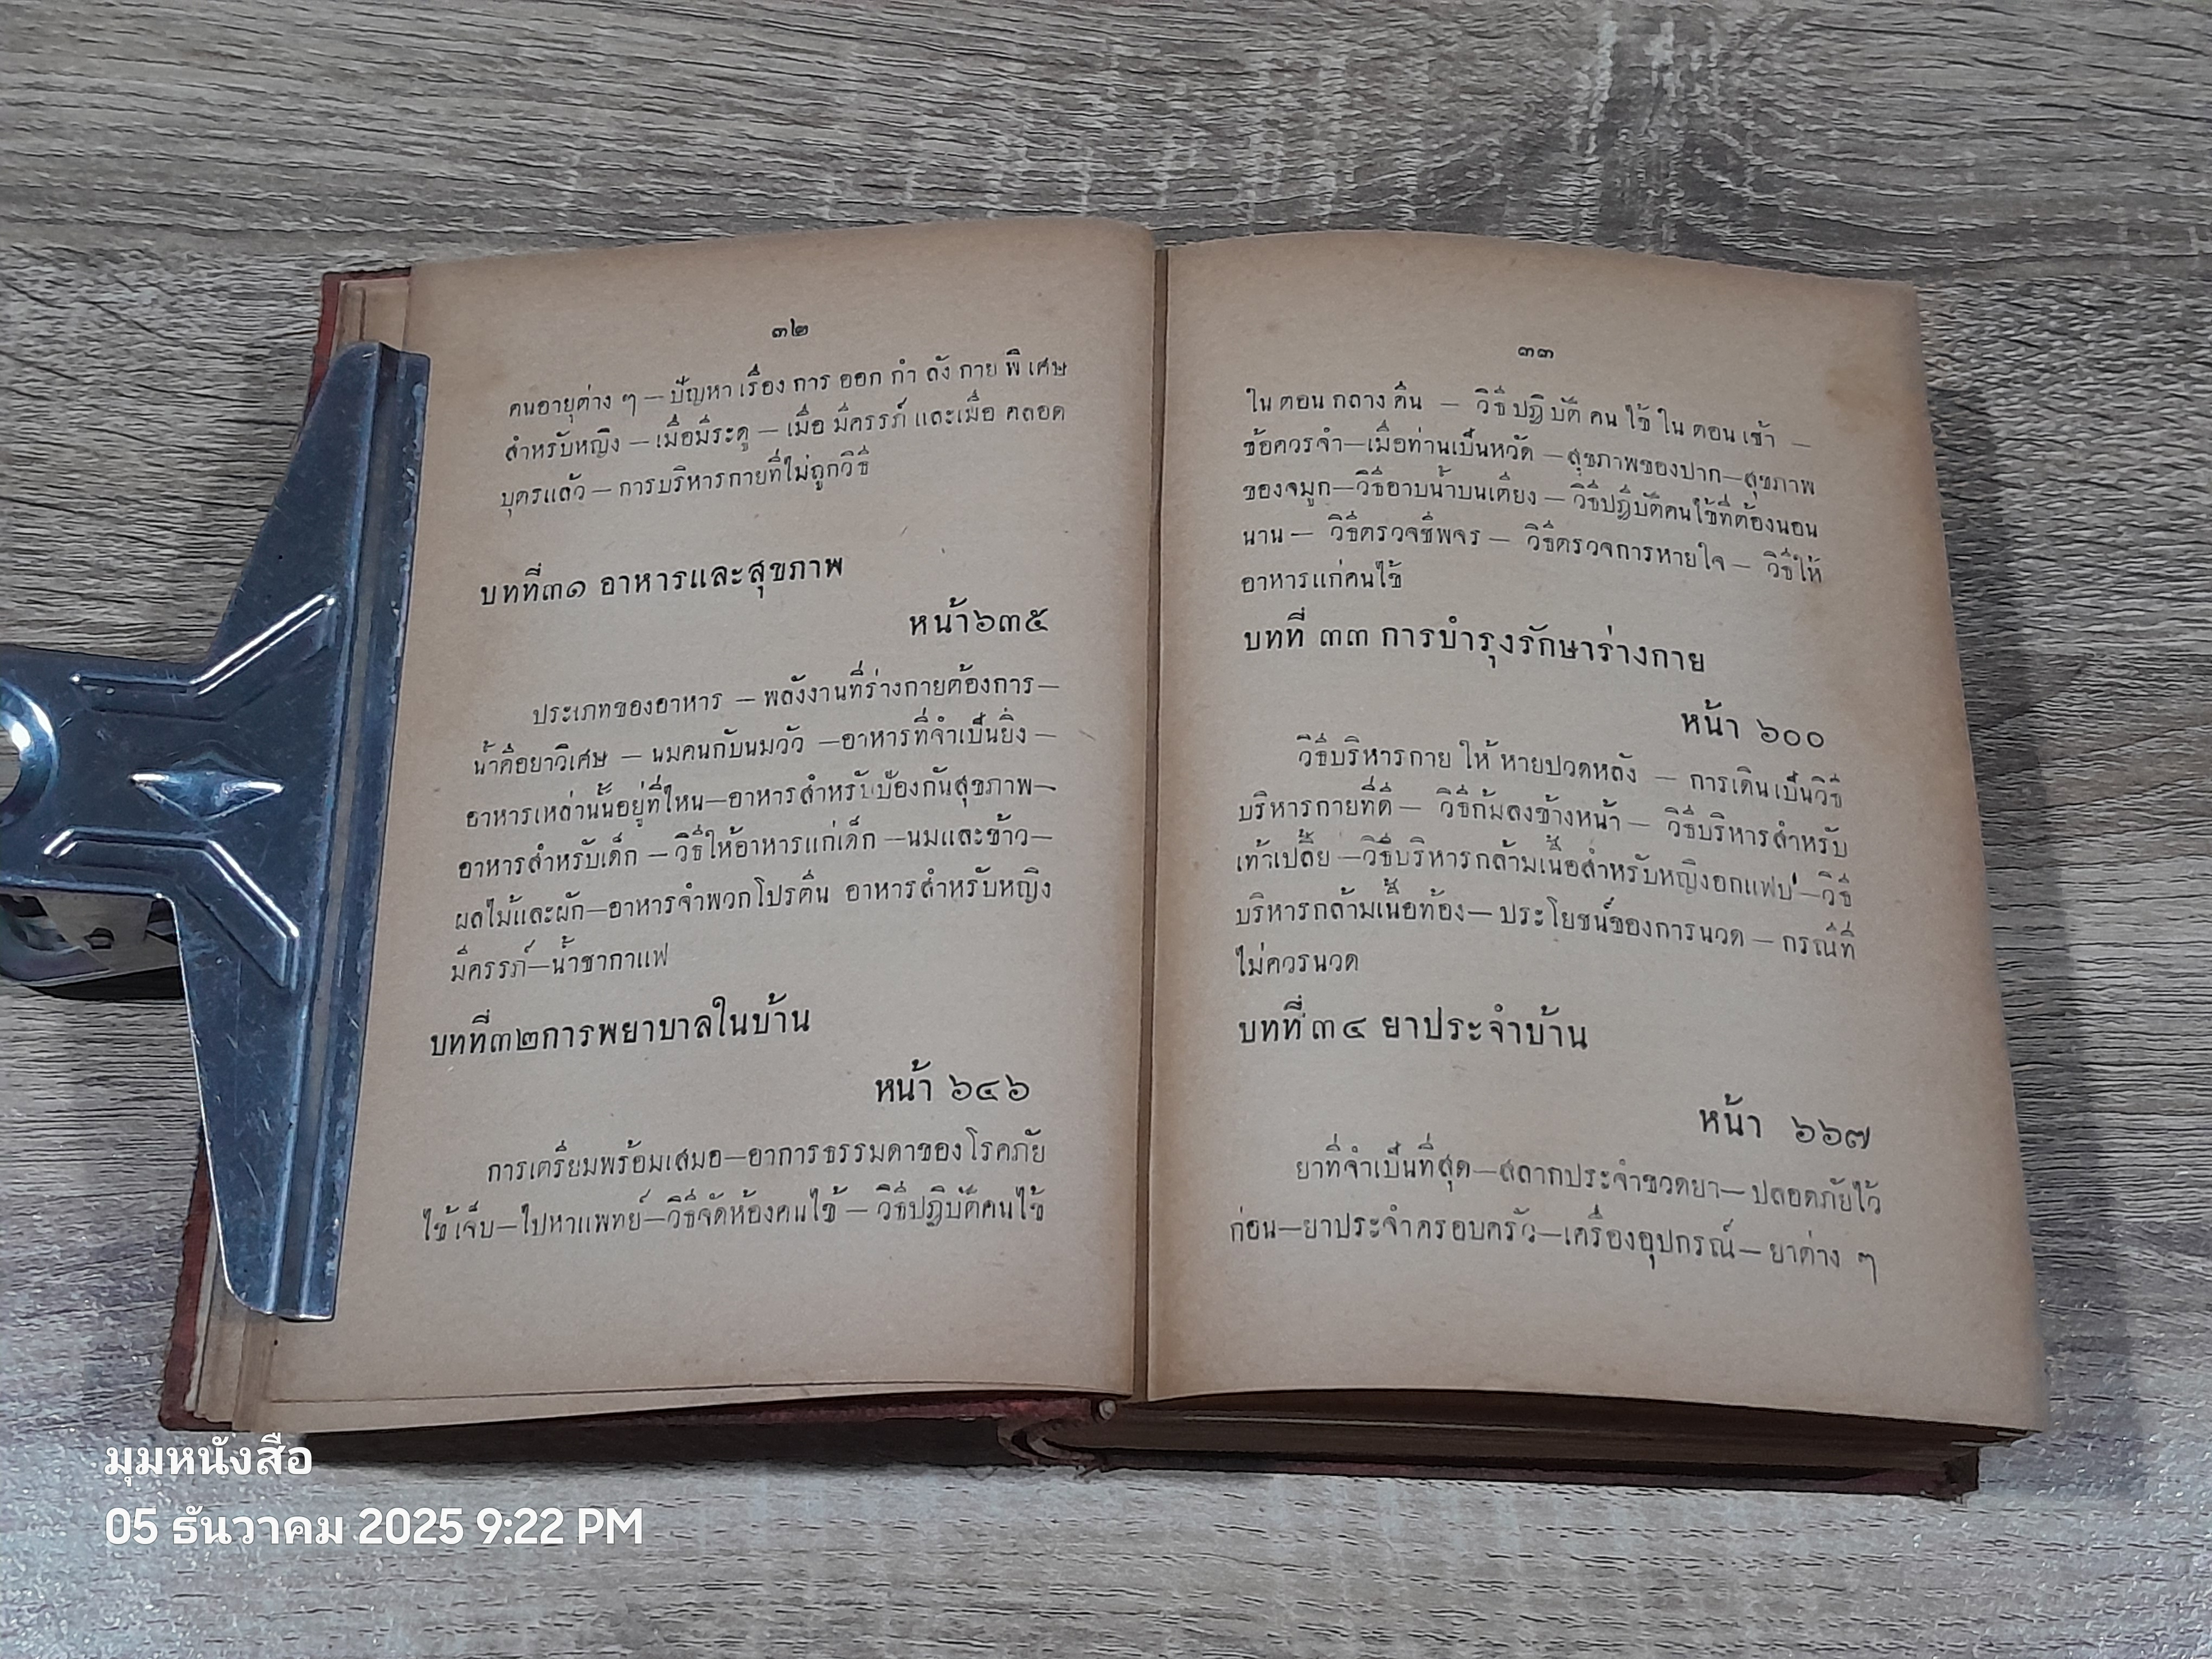 ๓๒
คนอายุต่าง ๆ — ปัญหาเรื่องการออกกำลังกายพิเศษ
สำหรับหญิง — เมื่อมีระดู — เมื่อมีครรภ์ และเมื่อ คลอด
บุตรแล้ว — การบริหารกายที่ไม่ถูกวิธี
บทที่๓๑ อาหารและสุขภาพ
หน้า๖๓๕
ประเภทของอาหาร — พลังงานที่ร่างกายต้องการ—
น้ำคือยาวิเศษ — นมคนกับนมวัว —อาหารที่จำเป็นยิ่ง —
อาหารเหล่านั้นอยู่ที่ไหน—อาหารสำหรับป้องกันสุขภาพ—
อาหารสำหรับเด็ก — วิธีให้อาหารแก่เด็ก —นมและข้าว—
ผลไม้และผัก—อาหารจำพวกโปรตีน อาหารสำหรับหญิง
มีครรภ์—น้ำชากาแฟ
บทที่๓๒การพยาบาลในบ้าน
หน้า ๖๔๖
การเตรียมพร้อมเสมอ—อาการธรรมดาของโรคภัย
ไข้เจ็บ—ไปหาแพทย์—วิธีจัดห้องคนไข้ — วิธีปฏิบัติคนไข้
๓๓
ในตอนกลางคืน — วิธีปฏิบัติคนไข้ในตอนเช้า —
ข้อควรจำ—เมื่อท่านเป็นหวัด —สุขภาพของปาก—สุขภาพ
ของจมูก—วิธีอาบน้ำบนเตียง — วิธีปฏิบัติคนไข้ที่ต้องนอน
นาน — วิธีตรวจชีพจร — วิธีตรวจการหายใจ — วิธีให้
อาหารแก่คนไข้
บทที่ ๓๓ การบำรุงรักษาร่างกาย
หน้า ๖๐๐
วิธีบริหารกาย ให้ หายปวดหลัง — การเดินเป็นวิธี
บริหารกายที่ดี — วิธีก้มลงข้างหน้า — วิธีบริหารสำหรับ
เท้าเปลี้ย —วิธีบริหารกล้ามเนื้อสำหรับหญิงอกแฟบ —วิธี
บริหารกล้ามเนื้อท้อง— ประโยชน์ของการนวด — กรณีที่
ไม่ควรนวด
บทที่ ๓๔ ยาประจำบ้าน
หน้า ๖๖๗
ยาที่จำเป็นที่สุด—สลากประจำขวดยา—ปลอดภัยไว้
ก่อน—ยาประจำครอบครัว—เครื่องอุปกรณ์— ยาต่าง ๆ
มุมหนังสือ
05 ธันวาคม 2025 9:22 PM